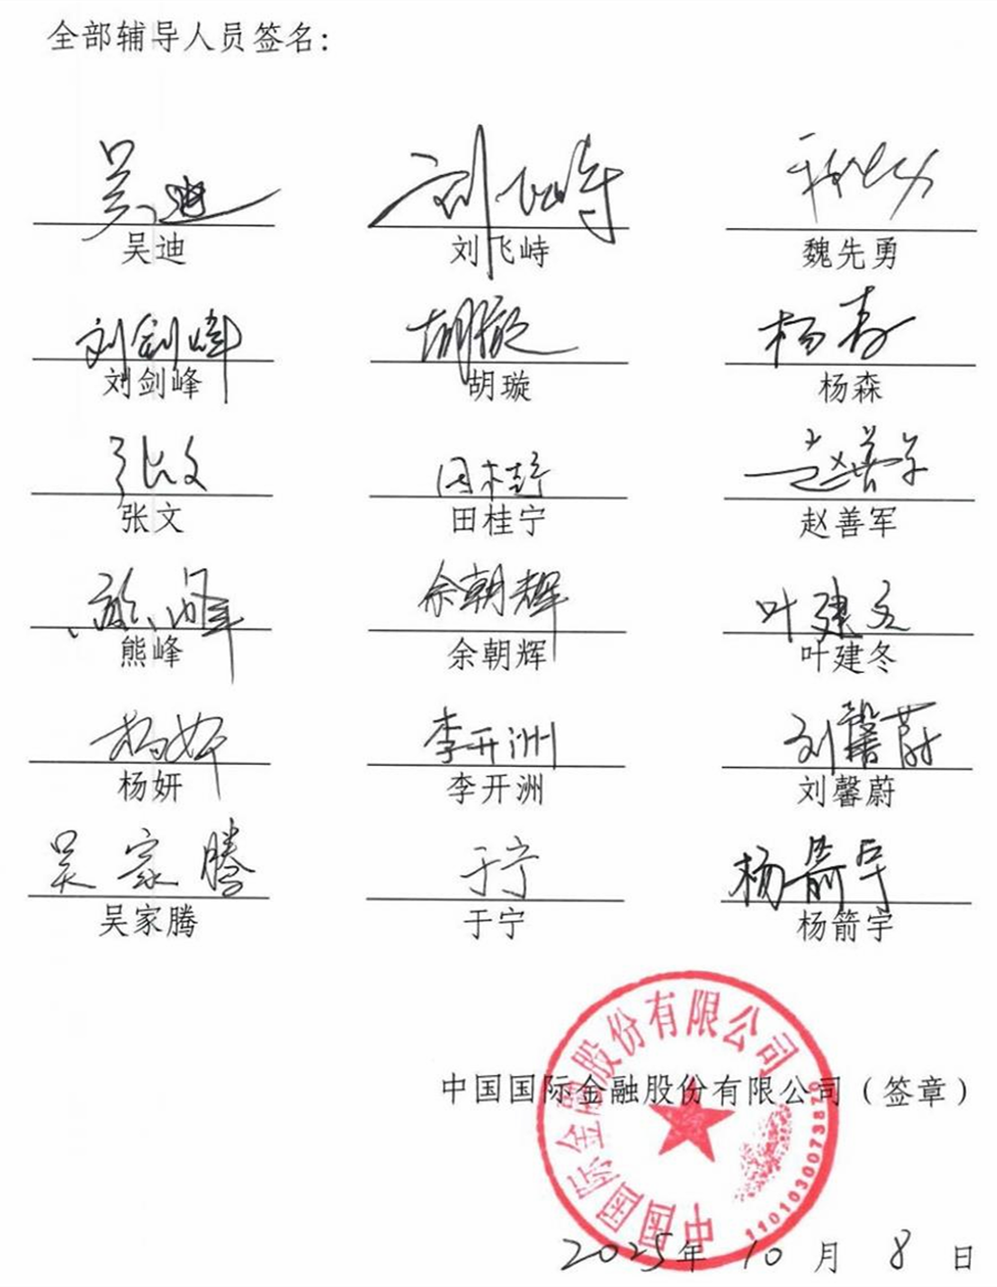 全部辅导人员签名：
吴迪 刘飞峙
吴迪 刘飞峙 魏先勇
刘剑峰 胡璇 杨森
刘剑峰 胡璇 杨森
张文 田桂宁 赵善军
张文 田桂宁 赵善军
熊峰 余朝辉 叶建冬
熊峰 余朝辉 叶建冬
杨妍 李开洲 刘馨蔚
杨妍 李开洲 刘馨蔚
吴家腾 于宁 杨箭宇
吴家腾 于宁 杨箭宇
中国国际金融股份有限公司
中国国际金融股份有限公司（签章）
1101030073870
2025年 10 月 8 日